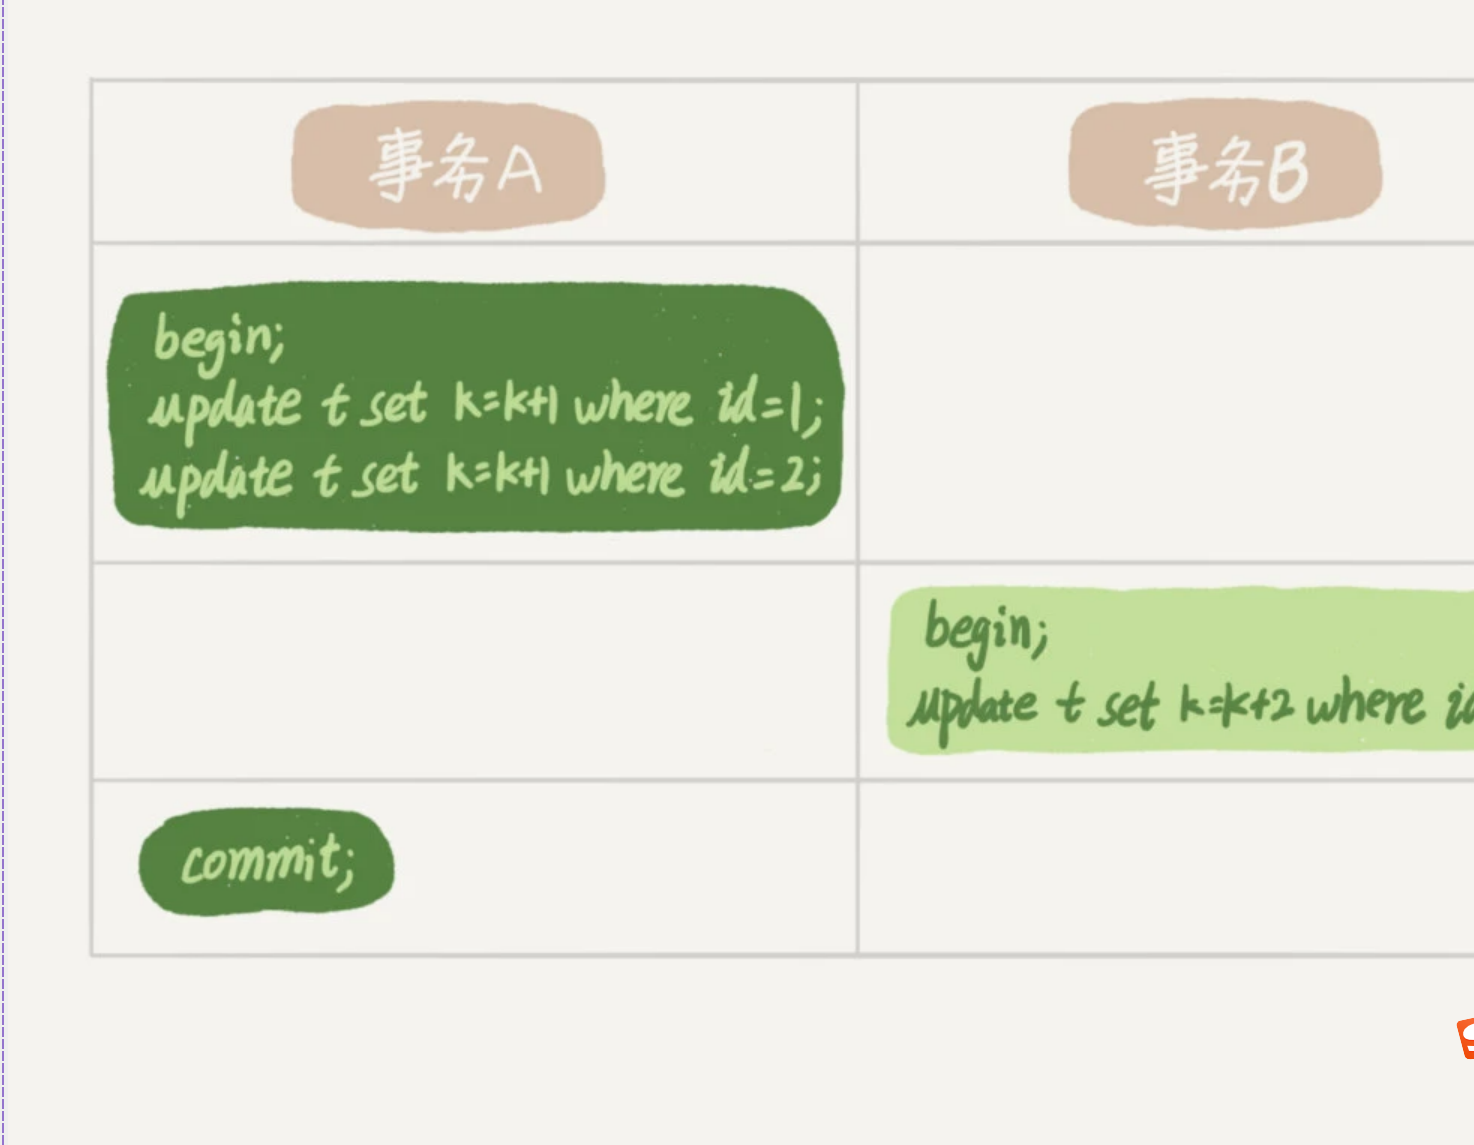 事务A
事务B
begin;
update t set k=k+1 where id=1;
update t set k=k+1 where id=2;
begin;
update t set k=k+2 where
commit;